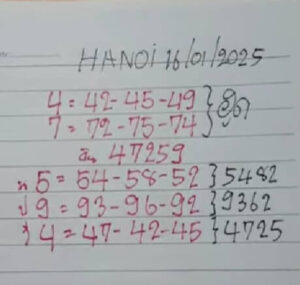 HANOI 16/01/2025
4 = 42-45-49}
7 = 72-75-74}
47259
5 = 54-58-52}5482
9 = 93-96-92}9362
4 = 47-42-45}4725